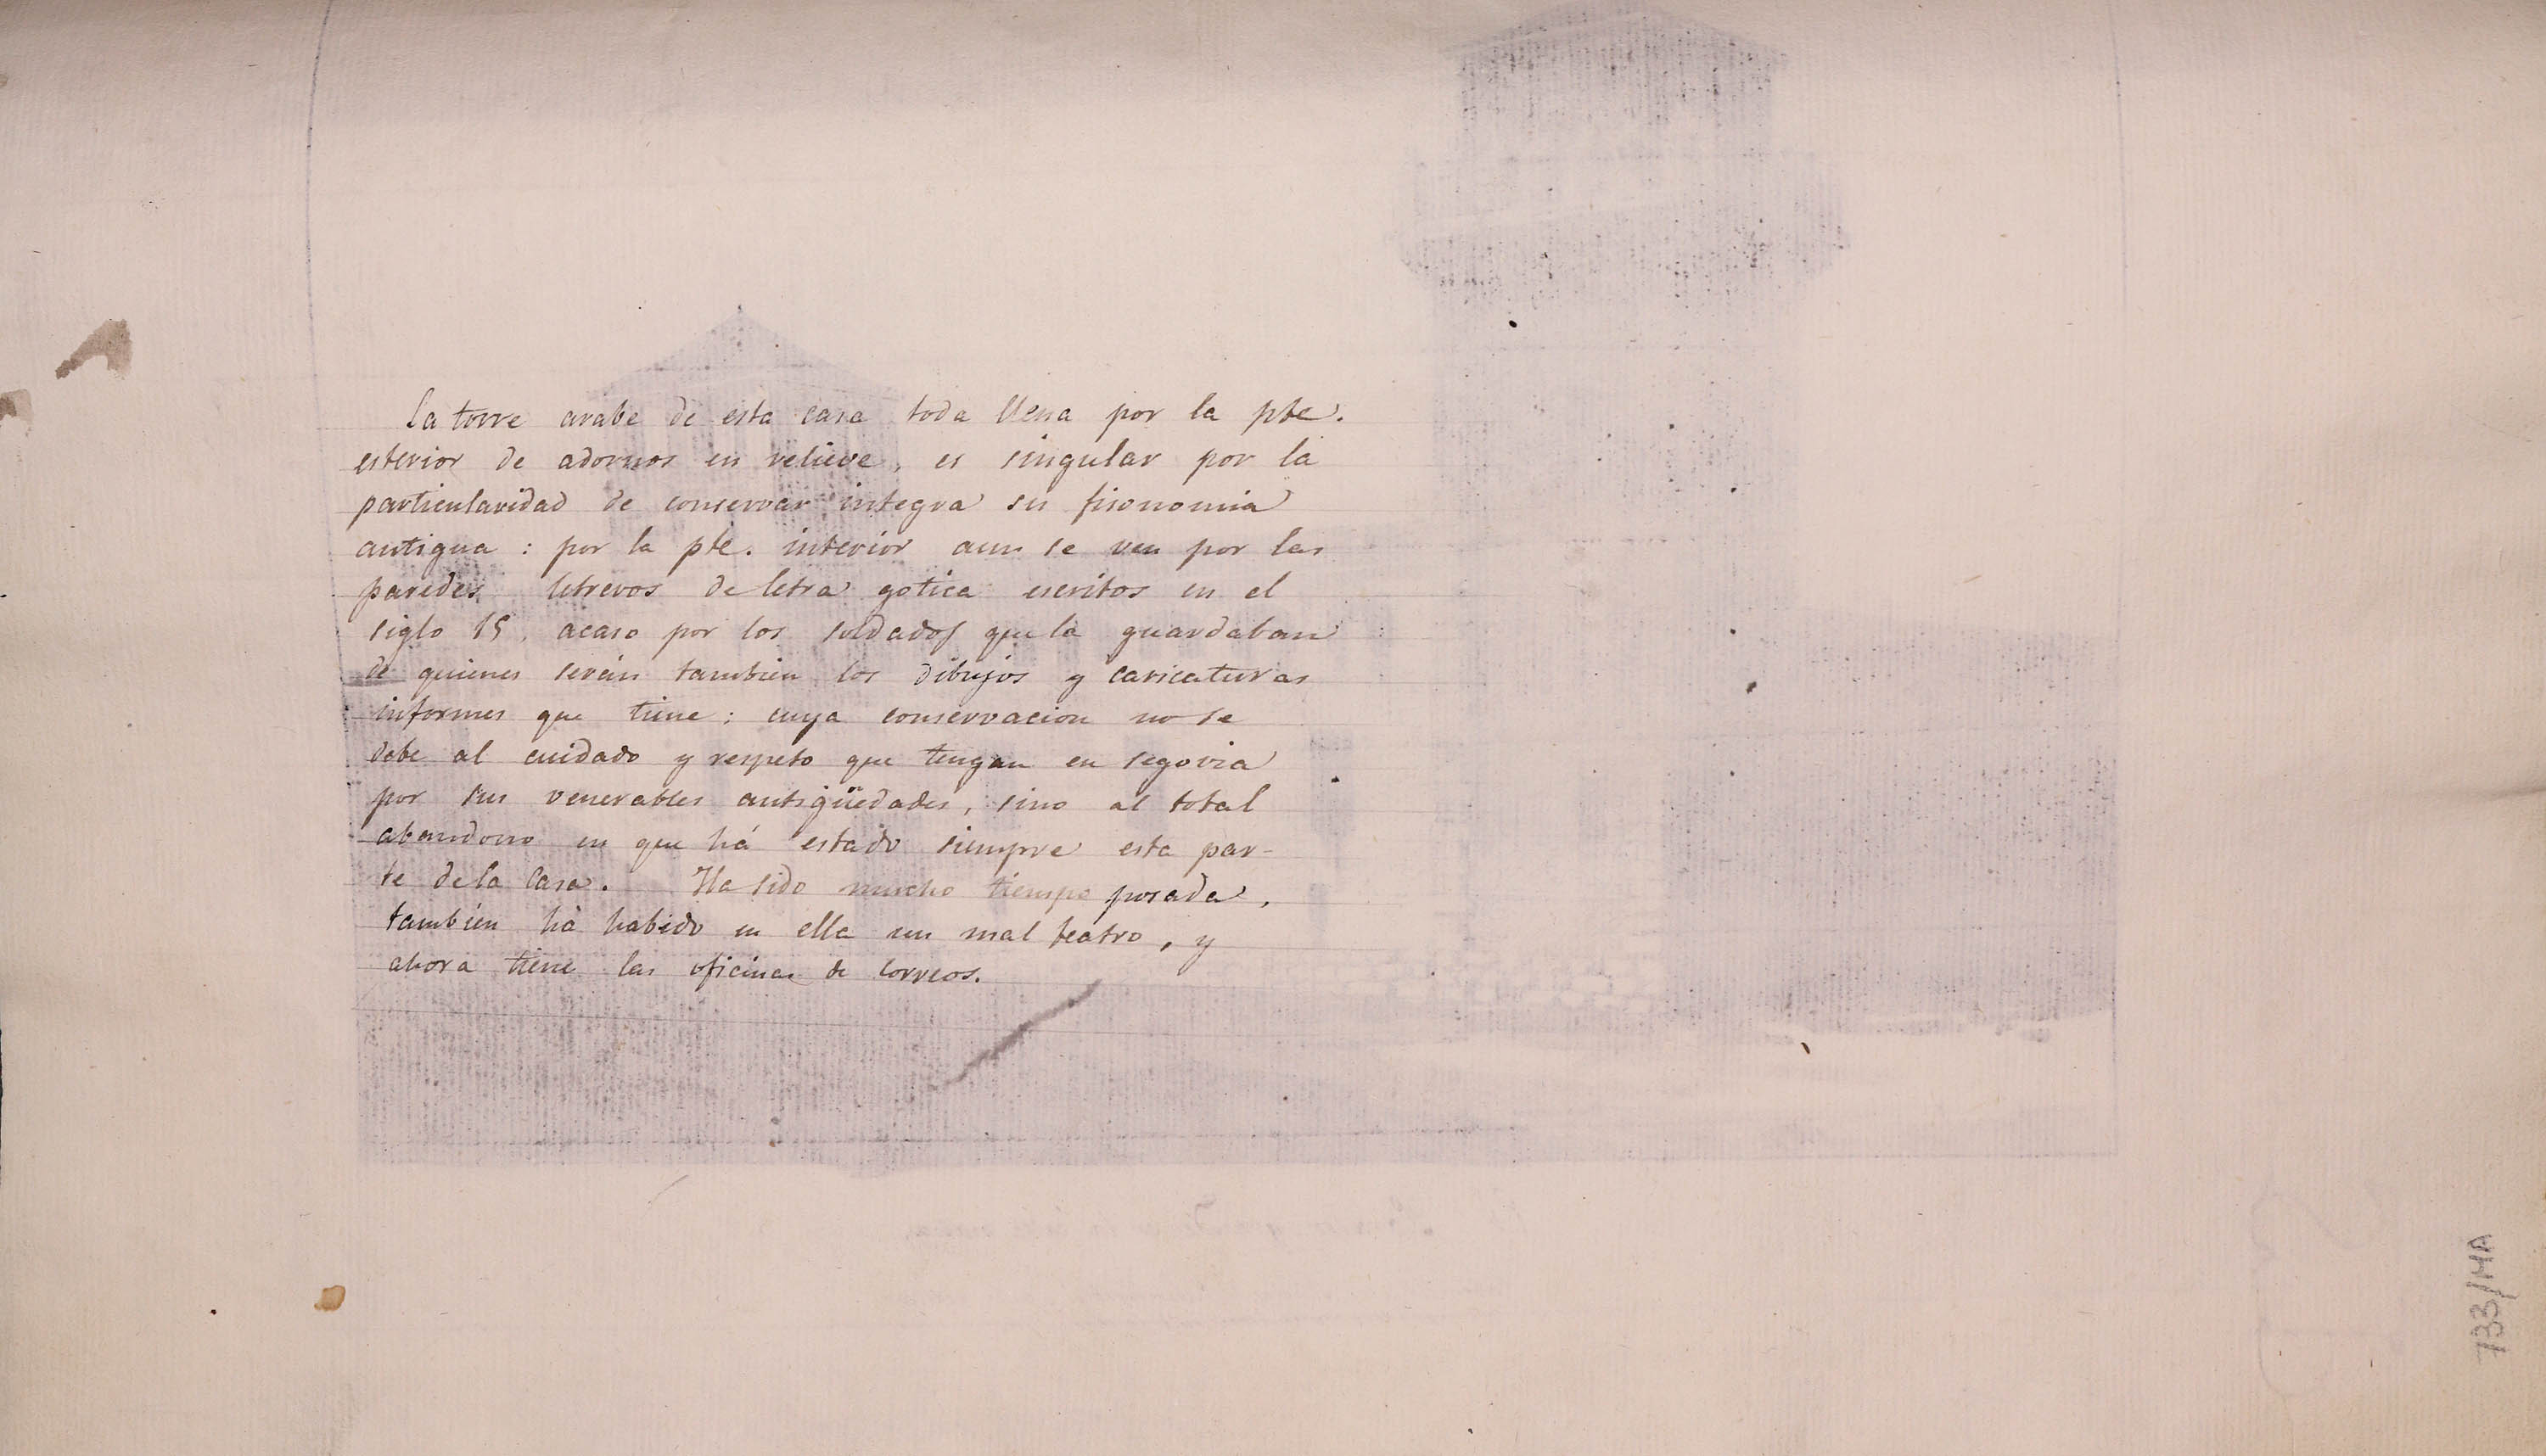 La torre arabe de esta casa toda llena por la pte.
esterior de adornos en relieve, es singular por la
particularidad de conservar integra su fisonomia
antigua : por la pte. interior aun se ven por las
paredes letreros de letra gotica escritos en el
siglo 15, acaso por los soldados que la guardaban
de quienes serán tambien los dibujos y caricaturas
informes que tiene ; cuya conservacion no se
debe al cuidado y respeto que tengan en segovia
por sus venerables antigüedades, sino al total
abandono en que há estado siempre esta par-
te de la casa. Ha sido mucho tiempo posada,
tambien há habido en ella un mal teatro, y
ahora tiene las oficinas de correos.
733/MA